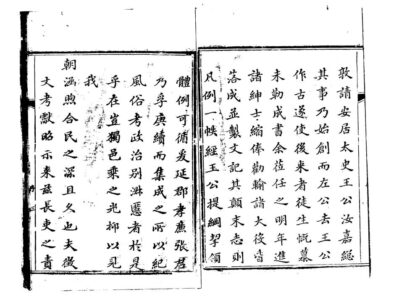 敦請安居太史王公汝嘉總
其事乃始創而左公去王公
作古遂使後來者徒生慨慕
未勒成書余莅任之明年進
諸紳士編俸勸輸諸大役皆
落成並製文記其顛末志則
凡例一帙經王公提綱挈領
體例可循爰延郡孝廉張君
乃孚賡續而集成之所以紀
風俗考政治別淑慝者於是
乎在豈獨邑乘之光抑以見
我
朝涵煦合民之深且久也夫徵
文考獻昭示來茲長吏之責